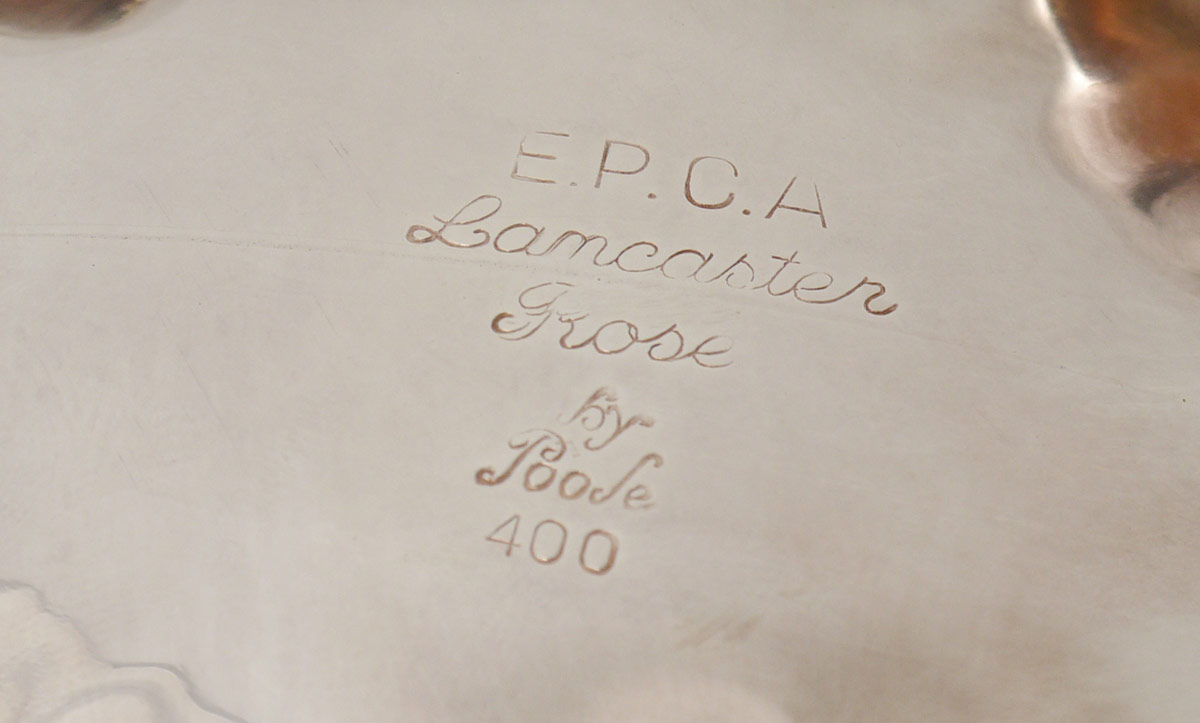 E.P.C.A
Lancaster
Rose
by
Poole
400